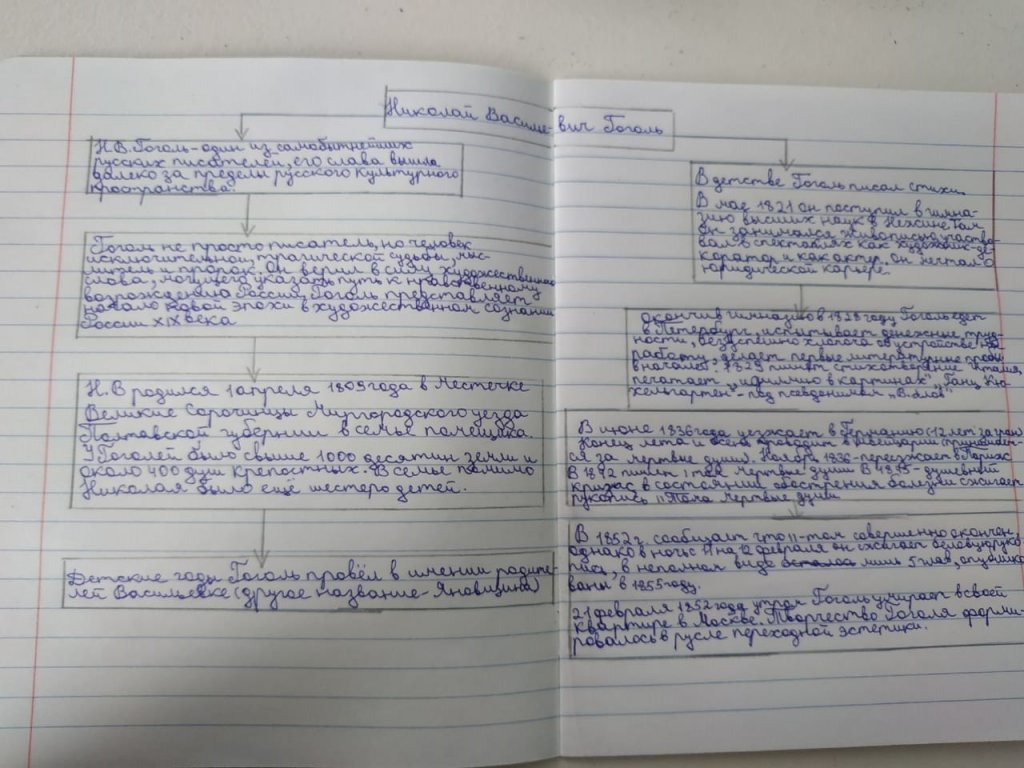 Николай Василье-вич Гоголь
Н.В.Гоголь-один из самобытнейших
русских писателей, его слава вышла
далеко за пределы русского культурного
пространства.
Гоголь не просто писатель, но человек
исключительной, трагической судьбы, мыс-
литель и пророк. Он верил в силу художественного
слова, могущего указать путь к нравственному
возрождению России, Гоголь представляет
начало новой эпохи в художественном сознании
России XIX века
Н.В родился 1 апреля 1809 года в местечке
Великие Сорочинцы Миргородского уезда
Полтавской губернии в семье помещика.
У Гоголей было свыше 1000 десятин земли и
около 400 душ крепостных. В семье помимо
Николая было ещё шестеро детей.
Детские годы Гоголь провёл в имении родите-
лей Васильевке (другое название-Яновщина)
В детстве Гоголь писал стихи.
В мае 1821 он поступил в гимна-
зию высших наук в Нежине. Там
он занимался живописью, участво-
вал в спектаклях как художник-де-
коратор и как актер, он мечтал о
юридической карьере.
окончив гимназию в 1828 году Гоголь едет
в Петербург, испытывает денежные труд-
ности, безуспешно хлопоча об устройстве на
работу, делает первые литературные пробы
в начале 1829 пишет стихотворение "Италия,
печатает "идиллию в картинах", "Ганц Кю-
хельгартен"- под псевдонимом "В.Алов"
В июне 1836 года уезжает в Германию (12 лет за гран)
Конец лета и осень проводит в Швейцарии
ся за мертвые души. Ноябрь 1836-переезжает в Париж
В 1842 пишет 1 том мертвые души В 1845-душевный
кризис в состоянии обострения болезни сжигает
рукопись II тома мертвые души
В 1852 г. сообщает что II-том совершенно окончен,
однако в ночь с 11 на 12 февраля он сжигает беловую руко-
пись, в неполном виде лишь 5 глав, опублико
ваны в 1855 году.
21 февраля 1852 года утром Гоголь умирает в своей
квартире в Москве. Творчество Гоголя форми-
ровалось в русле переходной эстетики.